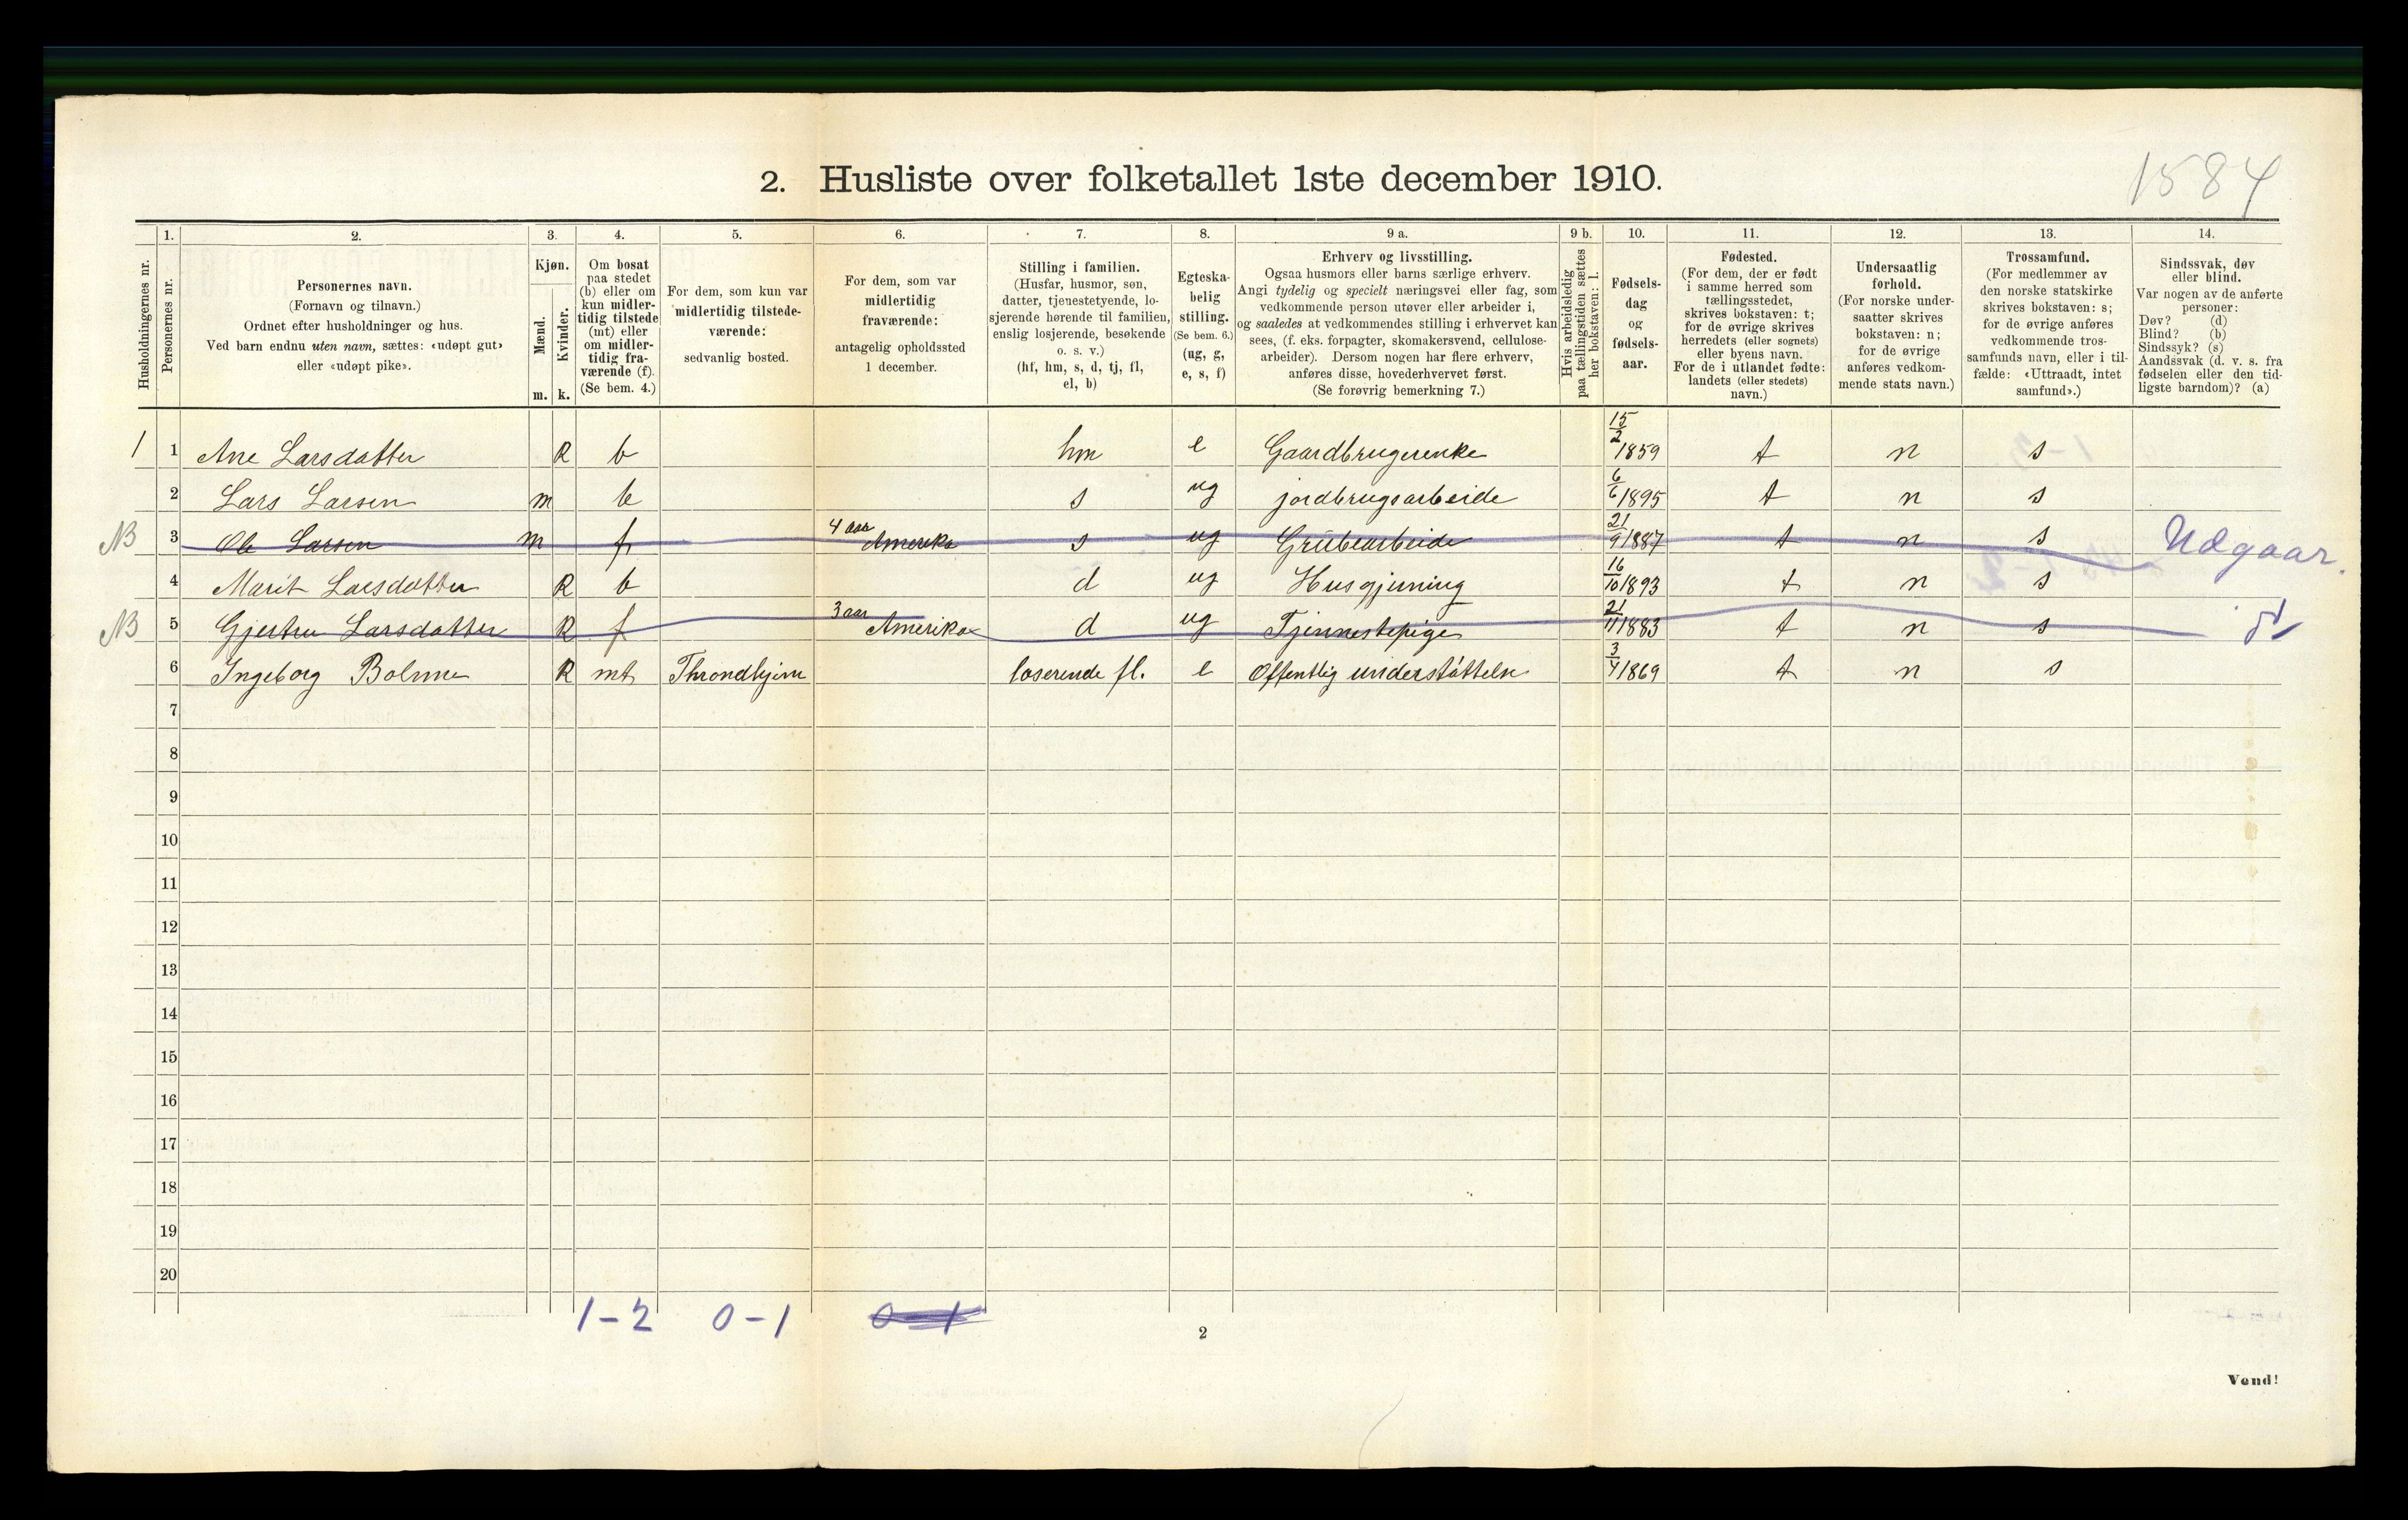 1584
2. Husliste over folketallet 1ste december 1910.
Husholdningernes nr.
1.
Personernes nr.
2.
Personernes navn.
(Fornavn og tilnavn.)
Ordnet efter husholdninger og hus.
Ved barn endnu uten navn, sættes: «udøpt gut»
eller «udøpt pike».
3.
Kjøn.
Mænd.
Kvinder.
m. k.
4.
Om bosat
paa stedet
(b) eller om
kun midler-
tidig tilstede
(mt) eller
om midler-
tidig fra-
værende (f).
(Se bem. 4.)
5.
For dem, som kun var
midlertidig tilstede-
værende:
sedvanlig bosted.
6.
For dem, som var
midlertidig
fraværende:
antagelig opholdssted
1 december.
7.
Stilling i familien.
(Husfar, husmor, søn,
datter, tjenestetyende, lo-
sjerende hørende til familien,
enslig losjerende, besøkende
o. s. v.)
(hf, hm, s, d, tj, fl,
el, b)
8.
Egteska-
belig
stilling.
(Se bem. 6.)
(ug, g,
e, s, f)
9 a.
Erhverv og livsstilling.
Ogsaa husmors eller barns særlige erhverv.
Angi tydelig og specielt næringsvei eller fag, som
vedkommende person utøver eller arbeider i,
og saaledes at vedkommendes stilling i erhvervet kan
sees, (f. eks. forpagter, skomakersvend, cellulose-
arbeider). Dersom nogen har flere erhverv,
anføres disse, hovederhvervet først.
(Se forøvrig bemerkning 7.)
9 b.
Hvis arbeidsledig
paa tællingstiden sættes
her bokstaven: l.
10.
Fødsels-
dag
og
fødsels-
aar.
11.
Fødested.
(For dem, der er født
i samme herred som
tællingsstedet,
skrives bokstaven: t;
for de øvrige skrives
herredets (eller sognets)
eller byens navn.
For de i utlandet fødte:
landets (eller stedets)
navn.)
12.
Undersaatlig
forhold.
(For norske under-
saatter skrives
bokstaven: n;
for de øvrige
anføres vedkom-
mende stats navn.)
13.
Trossamfund.
(For medlemmer av
den norske statskirke
skrives bokstaven: s;
for de øvrige anføres
vedkommende tros-
samfunds navn, eller i til-
fælde: «Uttraadt, intet
samfund».)
14.
Sindssvak, døv
eller blind.
Var nogen av de anførte
personer:
Døv? (d)
Blind? (b)
Sindssyk? (s)
Aandssvak (d. v. s. fra
fødselen eller den tid-
ligste barndom)? (a)
1 1 Ane Larsdatter k b hm e Gaardbrugerenke 15/2 1859 t n s
2 Lars Larsen m b s ug jordbrugsarbeide 6/6 1895 t n s
NB 3 Ole Larsen m f 4 aar Amerika s ug Grubearbeide 21/9 1887 t n s Udgaar.
4 Marit Larsdatter k b d ug Husgjerning 16/10 1893 t n s
NB 5 Gjertru Larsdatter k f 3 aar Amerika d ug Tjenestepige 21/11 1883 t n s
6 Ingeborg Bolme k mt Throndhjem loserende fl. e Offentlig understøttelse 3/4 1869 t n s
7
8
9
10
11
12
13
14
15
16
17
18
19
20
1-2 0-1 0-1
2
Vend!